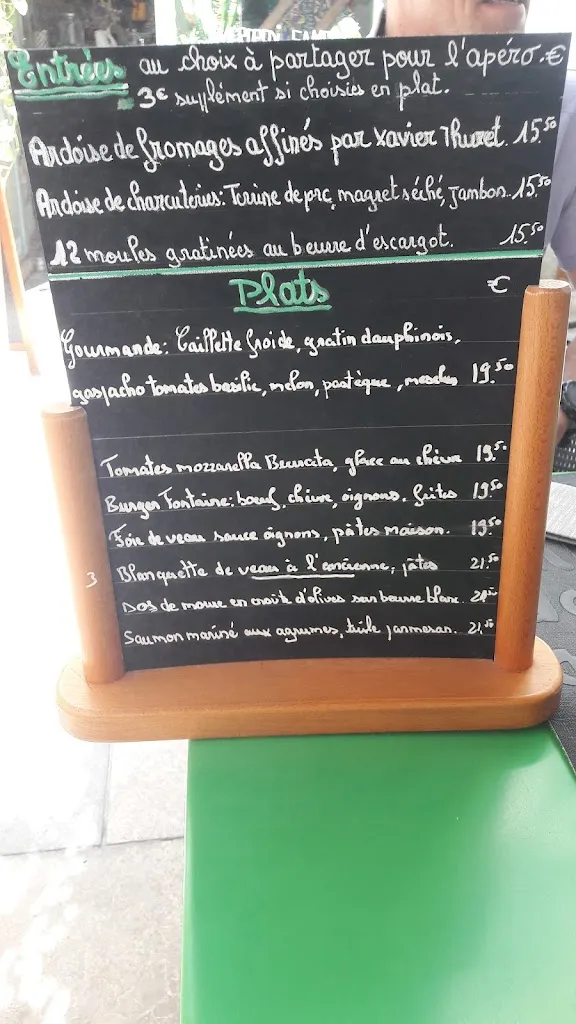 Entrées au choix à partager pour l'apéro. €
3€ supplément si choisies en plat.
Ardoise de fromages affinés par Xavier Thuret. 15.50
Ardoise de charcuteries: Terrine de prc, magret séché, jambon. 15.50
12 moules gratinées au beurre d'escargot. 15.50
Plats €
Gourmande: Caillette froide, gratin dauphinois,
gaspacho tomates basilic, melon, pastèque, mesclun 19.50
Tomates mozzarella Burrata, glace au chèvre 19.50
Burger Fontaine: boeuf, chèvre, oignons. frites 19.50
Foie de veau sauce oignons, pâtes maison. 19.50
3 Blanquette de veau à l'ancienne, pâtes 21.50
Dos de morue en croûte d'olives san beurre blanc.
Saumon mariné aux agrumes, tuile parmesan. 21.50